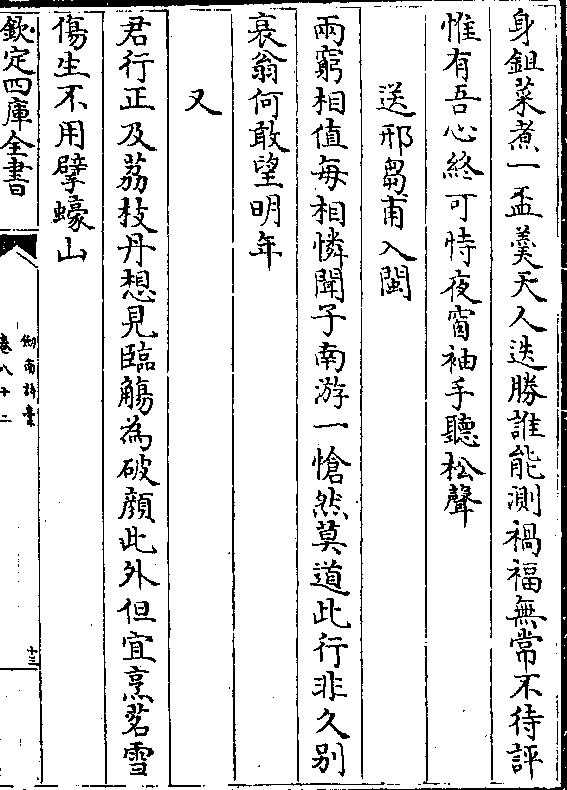 身鉏菜煮一盃羹天人迭勝誰能測禍福無常不待評
惟有吾心終可恃夜窗袖手聽松聲
送邢芻甫入閩
兩窮相值每相憐聞子南游一愴然莫道此行非久别
衰翁何敢望明年
又
君行正及荔枝丹想見臨觴為破顔此外但宜烹茗雪
傷生不用擘蠔山
欽定四庫全書
劒南詩藁
卷八十二
十三